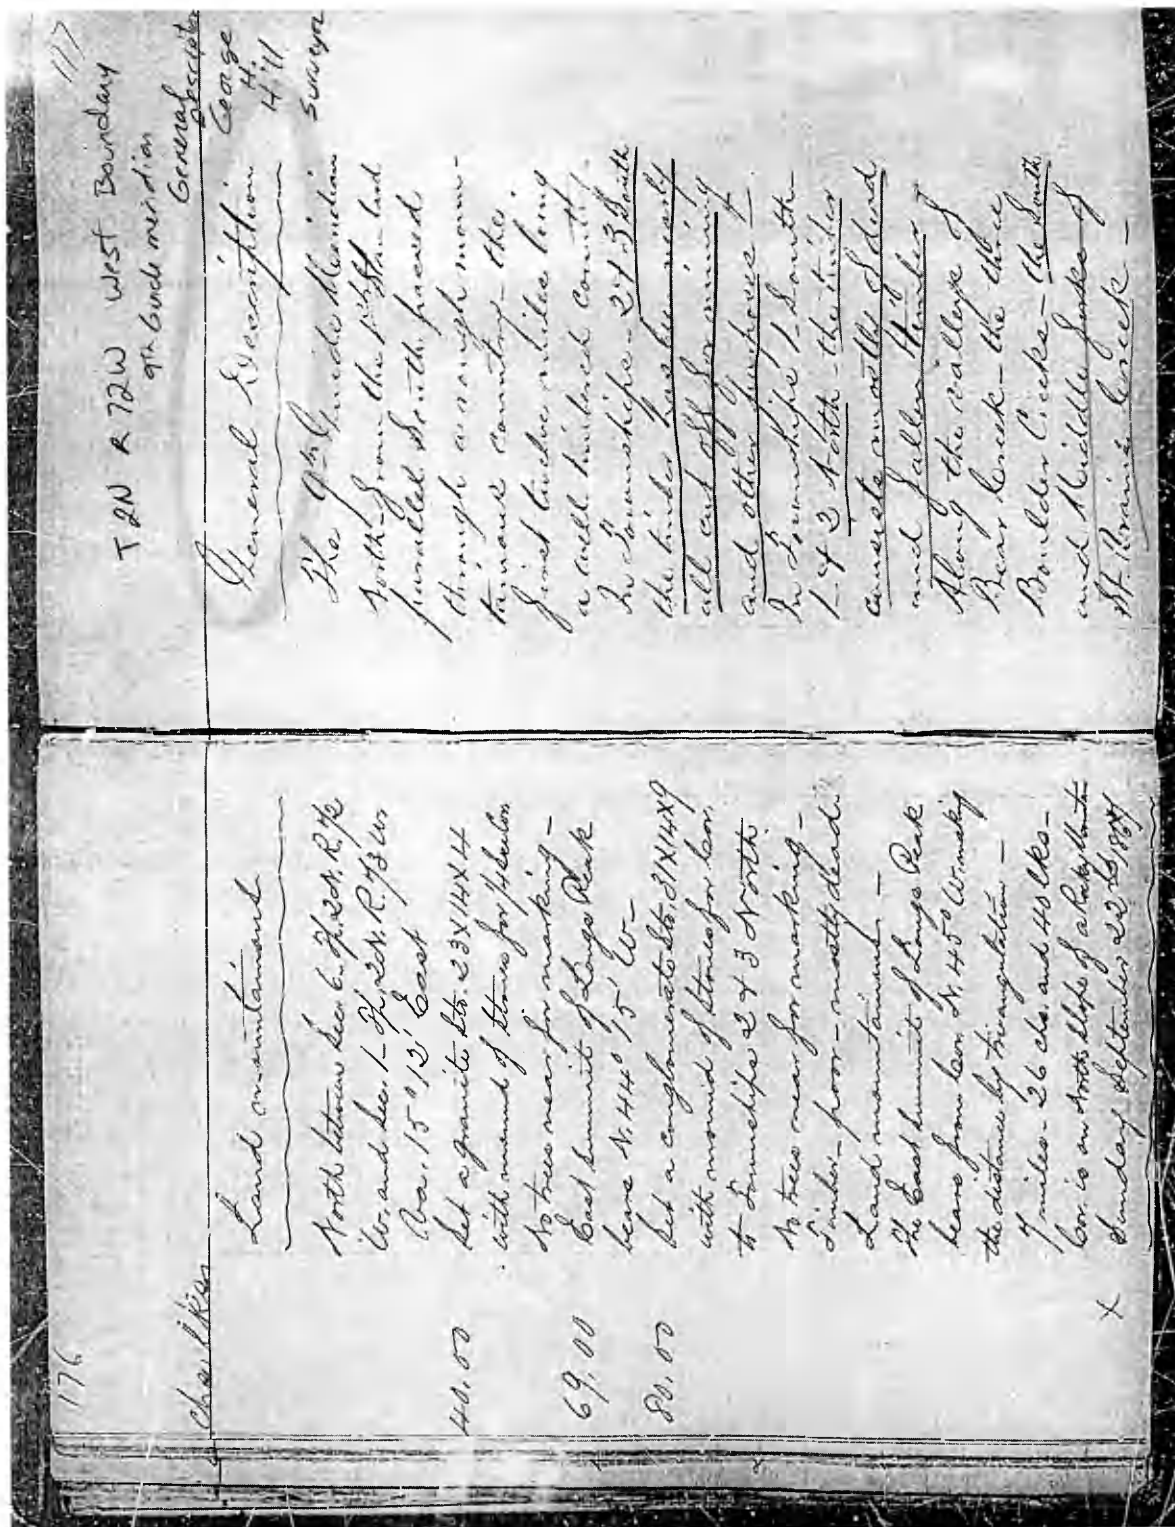 176
Land mountainous
North between Sec. 6. Tp. 2 N. R. 72
W. and Sec. 1 - Tp. 2 N. R. 73 W
Va. 15° 12' East
40.00 Set a granite Sto. 23 X 14 X 4
with mound of Stones for 1/4 Sec. Cor.
No trees near for marking -
69.00 East Summit of Longs Peak
bears N. 44° 15' W -
80.00 Set a conglomerate Sto. 31 X 14 X 9
with mound of Stones for Cor.
to Townships 2 & 3 North
No trees near for marking -
Timber - poor - mostly dead
Land mountainous -
The East Summit of Longs Peak
bears from Cor. N. 45° W. making
the distance by triangulation -
7 miles - 26 chs. and 40 lks -
Cor. is on North Slope of a
X Sunday September 22
117
T2N R72W West Boundary
9th Guide meridian
General Description
General Description George
H.
Hill
Surveyor
The 9th Guide Meridian
North from the Std.
parallel South, passed
through a rough moun-
tainous country - the
first twelve miles being
a well timbered country.
In Townships - 2 & 3 South
the timber has been nearly
all cut off for mining
and other purposes -
In Townships 1 South
1 - & 2 North - the timber
consists mostly of dead
and fallen timber
Along the valleys of
Bear Creek - the three
Boulder Creeks - the South
and Middle forks of
St. Vrains Creek -